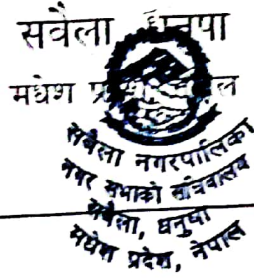 सबैला धनुषा
मधेश
सबैला नगरपालिका
नगर सभाको सचिवालय
सबैला, धनुषा
मधेश प्रदेश, नेपाल